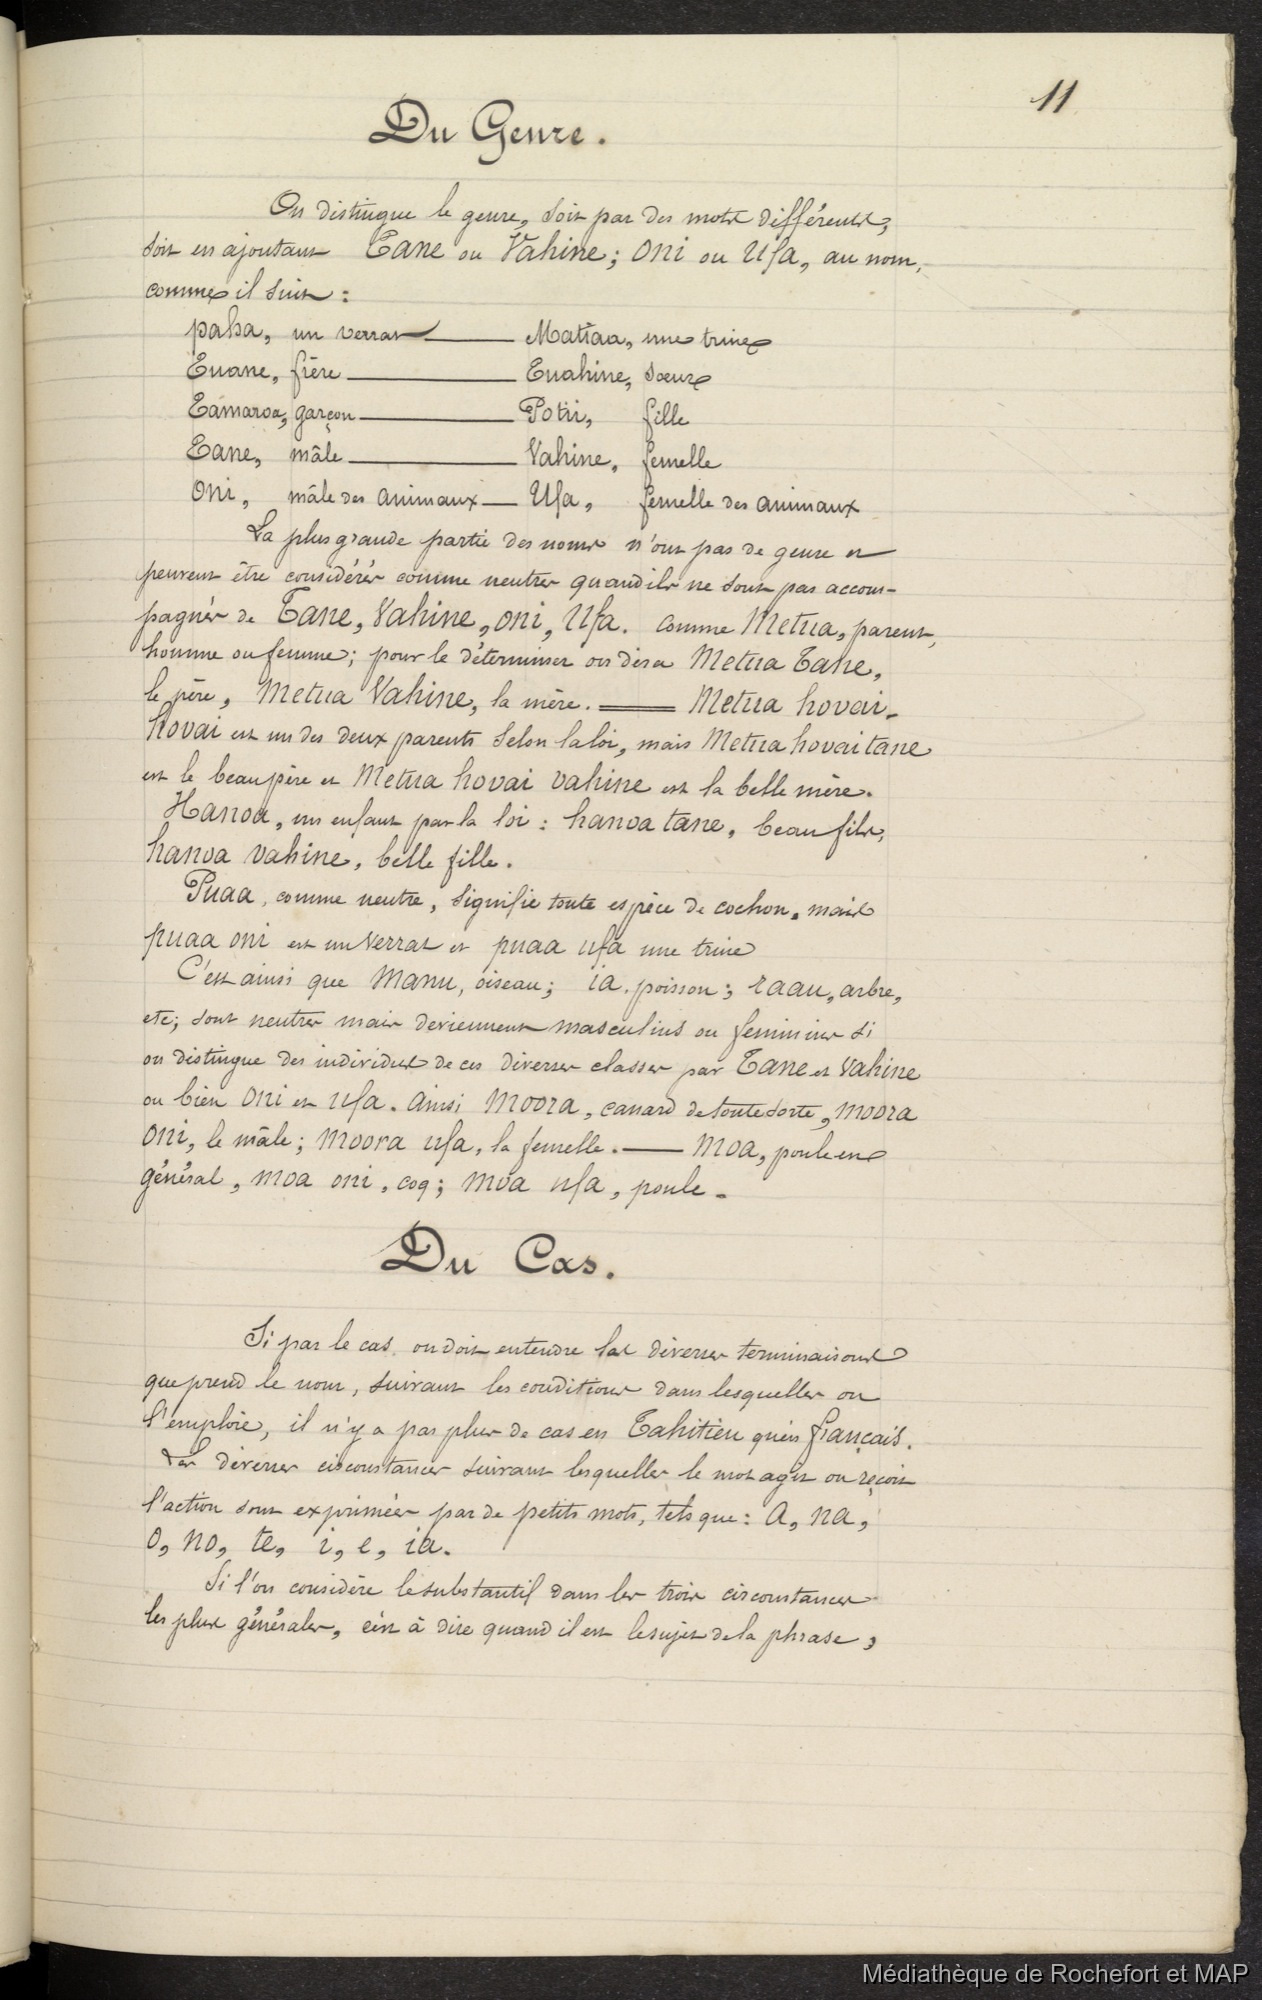 11
Du Genre.
On distingue le genre, soit par des mots différents,
soit en ajoutant Tane ou Vahine; Oni ou Ufa, au nom,
comme il suit:
paha, un verrat — Matiaa, une truie
Tuane, frère — Tuahine, sœur
Tamaroa, garçon — Potii, fille
Tane, mâle — Vahine, femelle
Oni, mâle des animaux — Ufa, femelle des animaux
La plus grande partie des noms n'ont pas de genre et
peuvent être considérés comme neutres quand ils ne sont pas accom-
pagnés de Tane, Vahine, oni, Ufa. comme Metua, parent,
homme ou femme; pour le déterminer on dira Metua Tane,
le père, Metua Vahine, la mère. — Metua hovai-
hovai est un des deux parents selon la loi, mais Metua hovai tane
est le beau père et Metua hovai vahine est la belle mère.
Hanoa, un enfant par la loi: hanoa tane, beau fils,
hanoa vahine, belle fille.
Puaa, comme neutre, signifie toute espèce de cochon, mais
puaa oni est un verrat et puaa ufa une truie
C'est ainsi que Manu, oiseau; ia, poisson; raau, arbre,
etc; sont neutres mais deviennent masculins ou feminins si
on distingue des individus de ces diverses classes par Tane et Vahine
ou bien Oni et Ufa. Ainsi Moora, canard de toute sorte, moora
oni, le mâle; moora ufa, la femelle. — moa, poule en
général, moa oni, coq; moa ufa, poule.
Du Cas.
Si par le cas on doit entendre les diverses terminaisons
que prend le nom, suivant les conditions dans lesquelles on
l'emploie, il n'y a pas plus de cas en Tahitien qu'en français.
Les diverses circonstances suivant lesquelles le mot agit ou reçoit
l'action sont exprimées par de petits mots, tels que: a, na,
o, no, te, i, e, ia.
Si l'on considère le substantif dans les trois circonstances
les plus générales, c'est à dire quand il est le sujet de la phrase,
Médiathèque de Rochefort et MAP